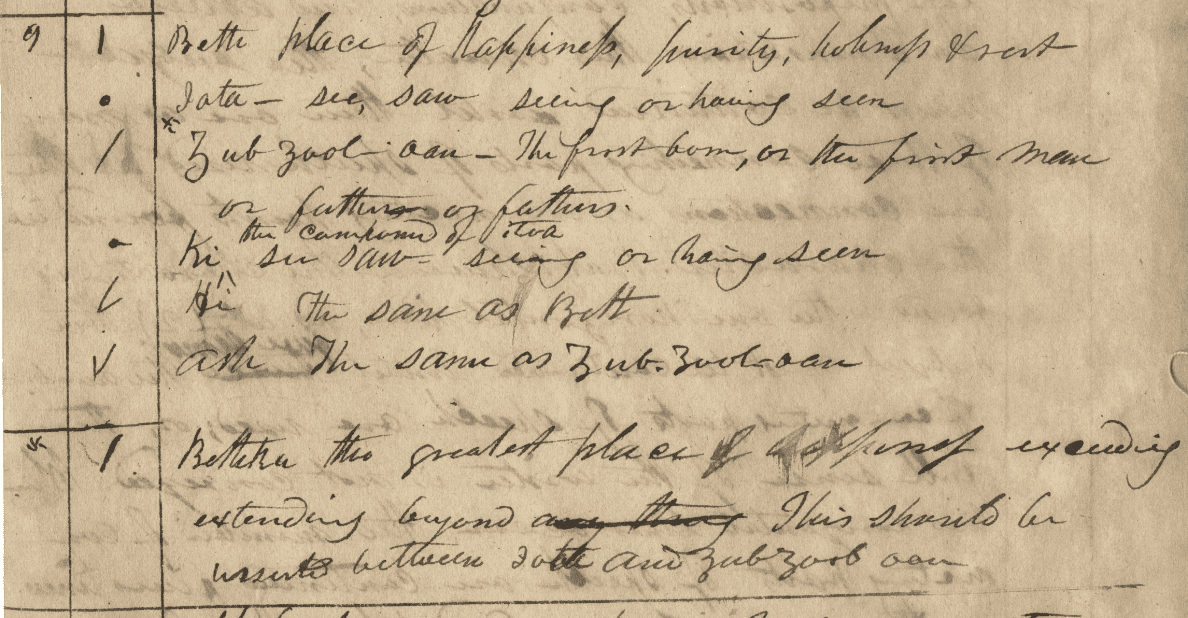 9 1 Beth place of happiness, purity, holiness & rest
Iota — see, saw seeing or having seen
* Zub Zool-oan — The first born, or the first man
or fathers or fathers.
the compound of itoa
Ki see saw — seeing or having seen
Hi The same as Beth
ash The same as Zub-Zool-oan
* 1 Bethka the greatest place of happiness exceeding
extending beyond any thing This should be
inserted between Iota and Zub Zool oan